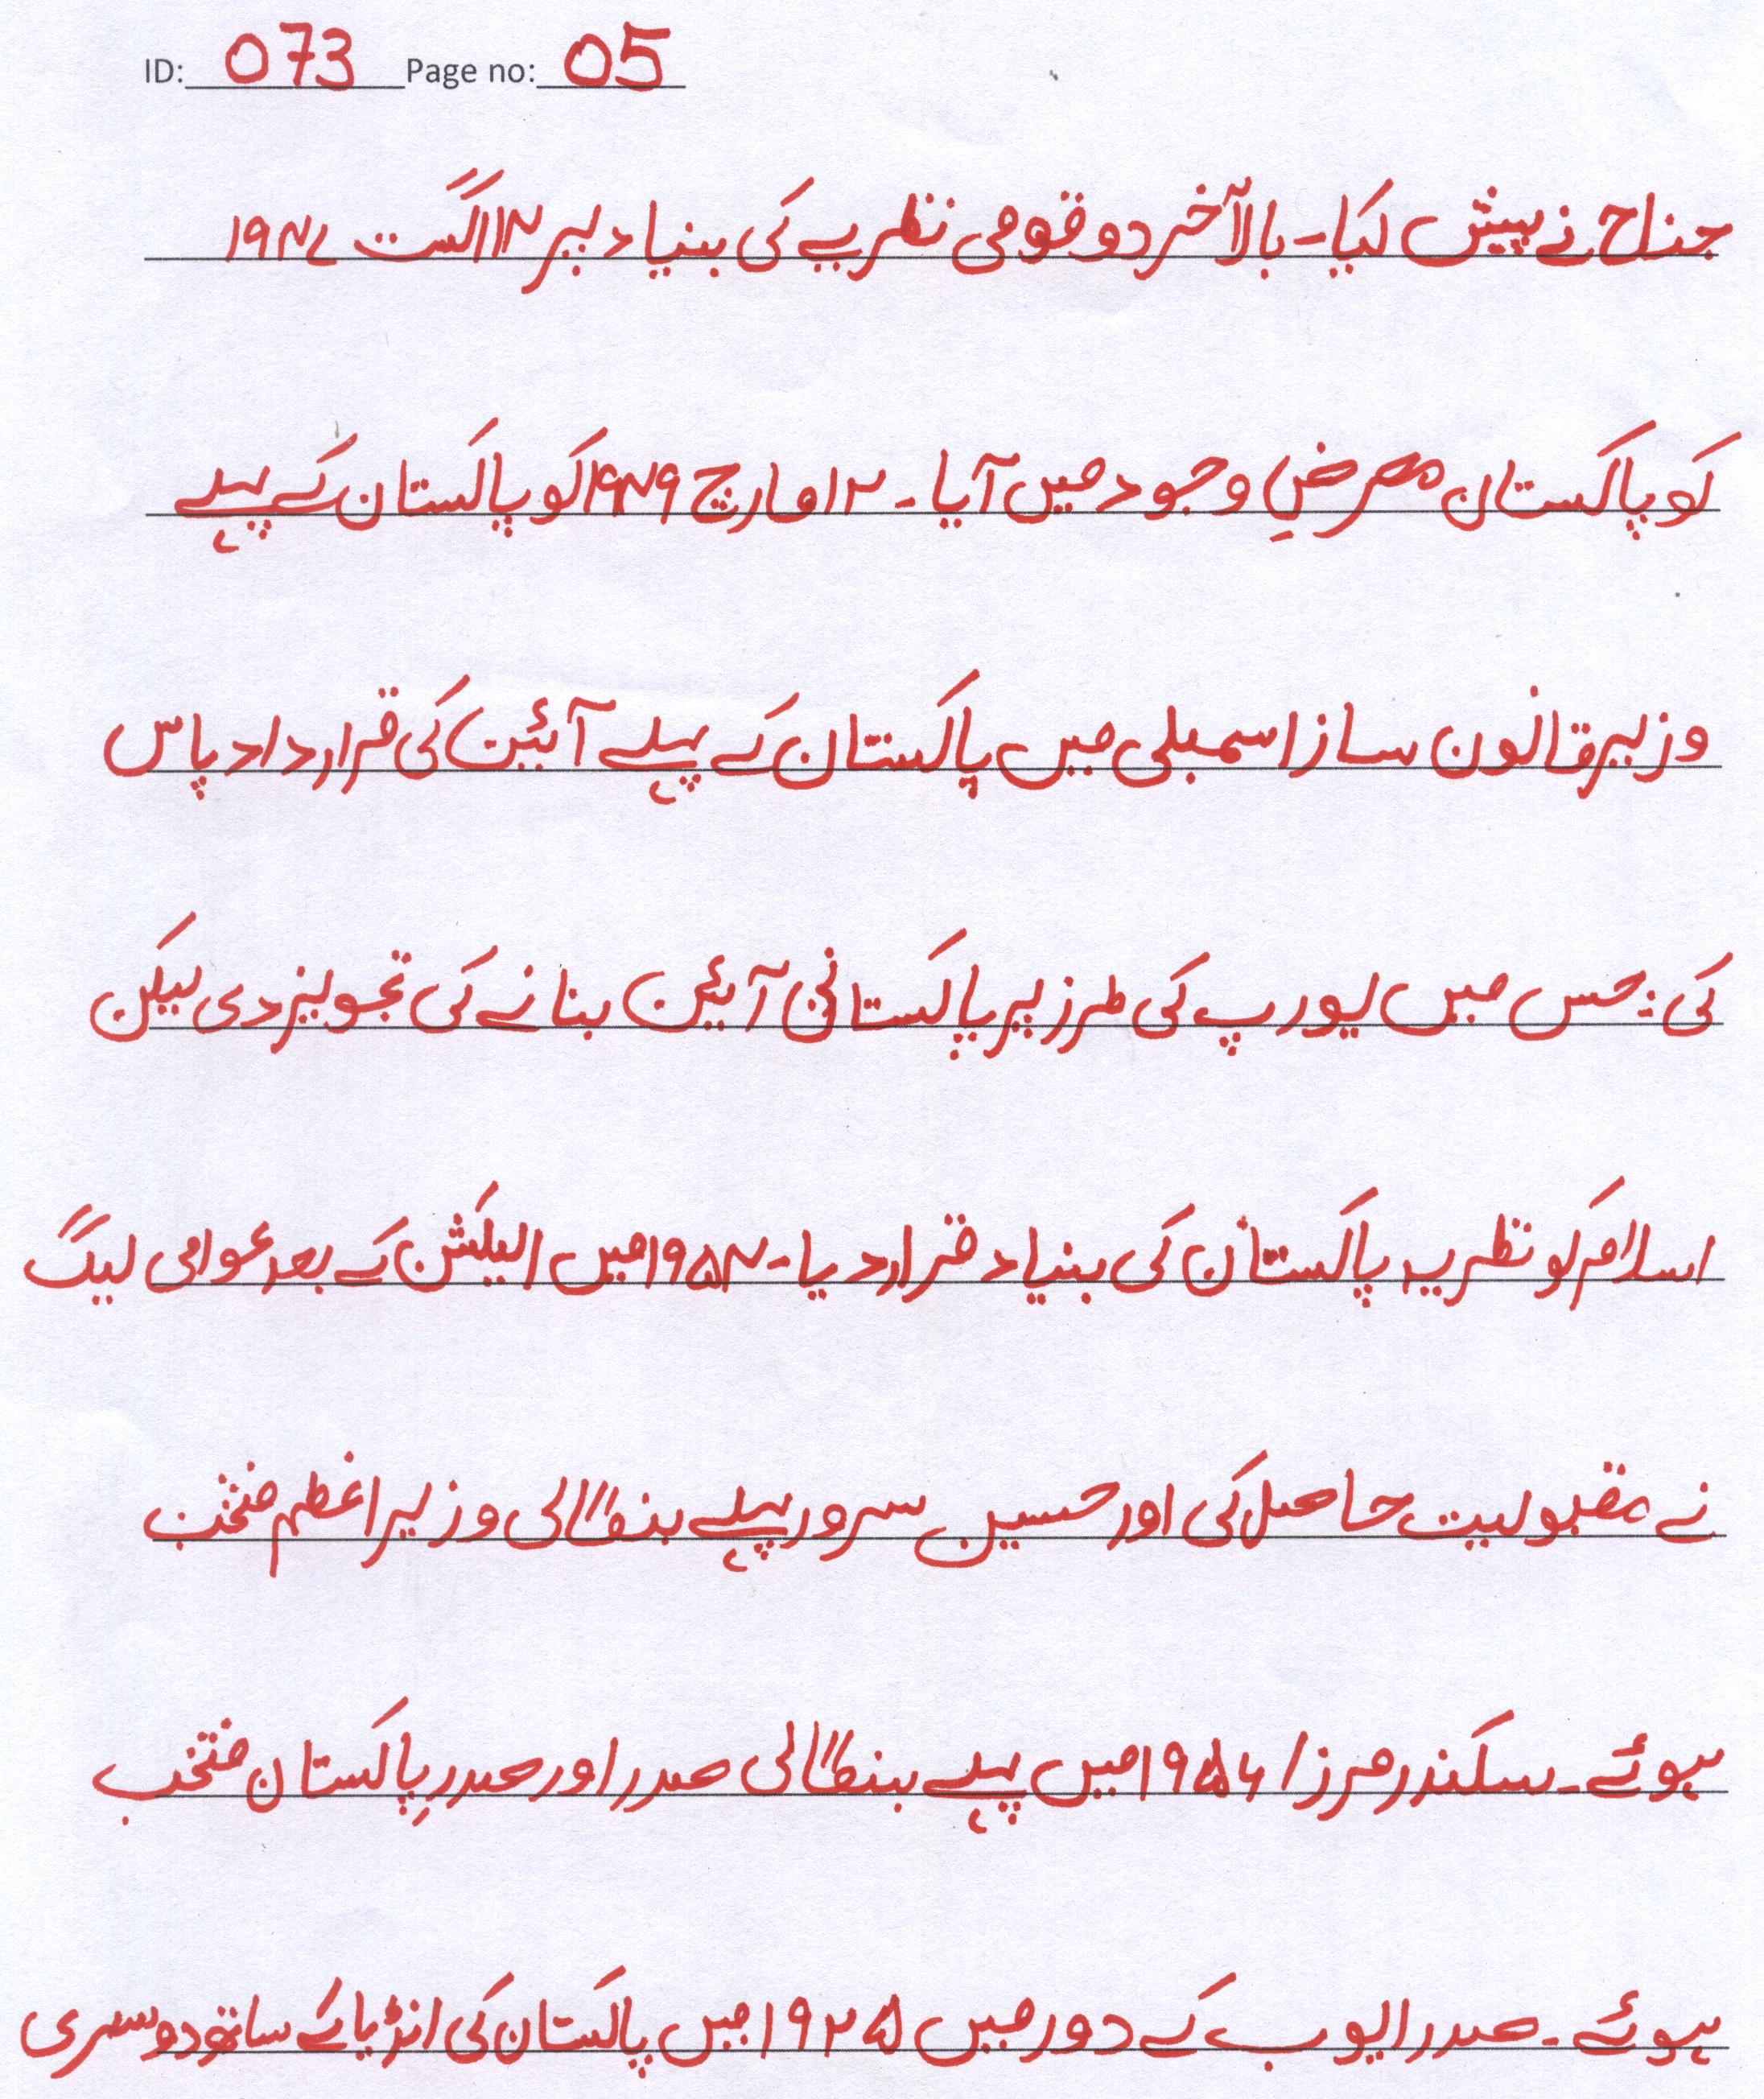 ID: 073 Page no: 05
جناح نے پیش کیا۔ بالآخر دو قومی نظریے کی بنیاد پر ۱۴ اگست ۱۹۴۷
کو پاکستان معرضِ وجود میں آیا۔ ۱۲ مارچ ۱۹۴۹ کو پاکستان کے پہلے
وزیر قانون ساز اسمبلی میں پاکستان کے پہلے آئین کی قرارداد پاس
کی: جس میں یورپ کی طرز پر پاکستانی آئین بنانے کی تجویز دی لیکن
اسلام کو نظریہ پاکستان کی بنیاد قرار دیا۔ ۱۹۵۴ میں الیکشن کے بعد عوامی لیگ
نے مقبولیت حاصل کی اور حسین سرور پہلے بنگالی وزیراعظم منتخب
ہوئے۔ سکندر مرزا ۱۹۵۶ میں پہلے بنگالی صدر اور صدرِ پاکستان منتخب
ہوئے۔ صدر ایوب کے دور میں ۱۹۲۵ میں پاکستان کی انڈیا کے ساتھ دوسری